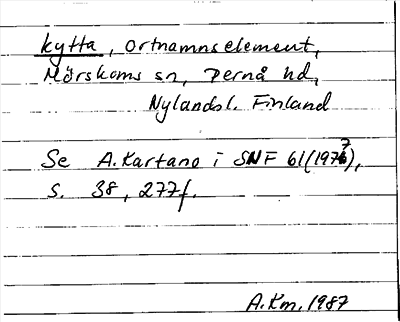 kytta, ortnamnselement,
Mörskoms sn, Pernå hd,
Nylandsl. Finland
Se A. Kartano i SNF 61 (1977),
s. 38, 277f.
A.Km. 1987